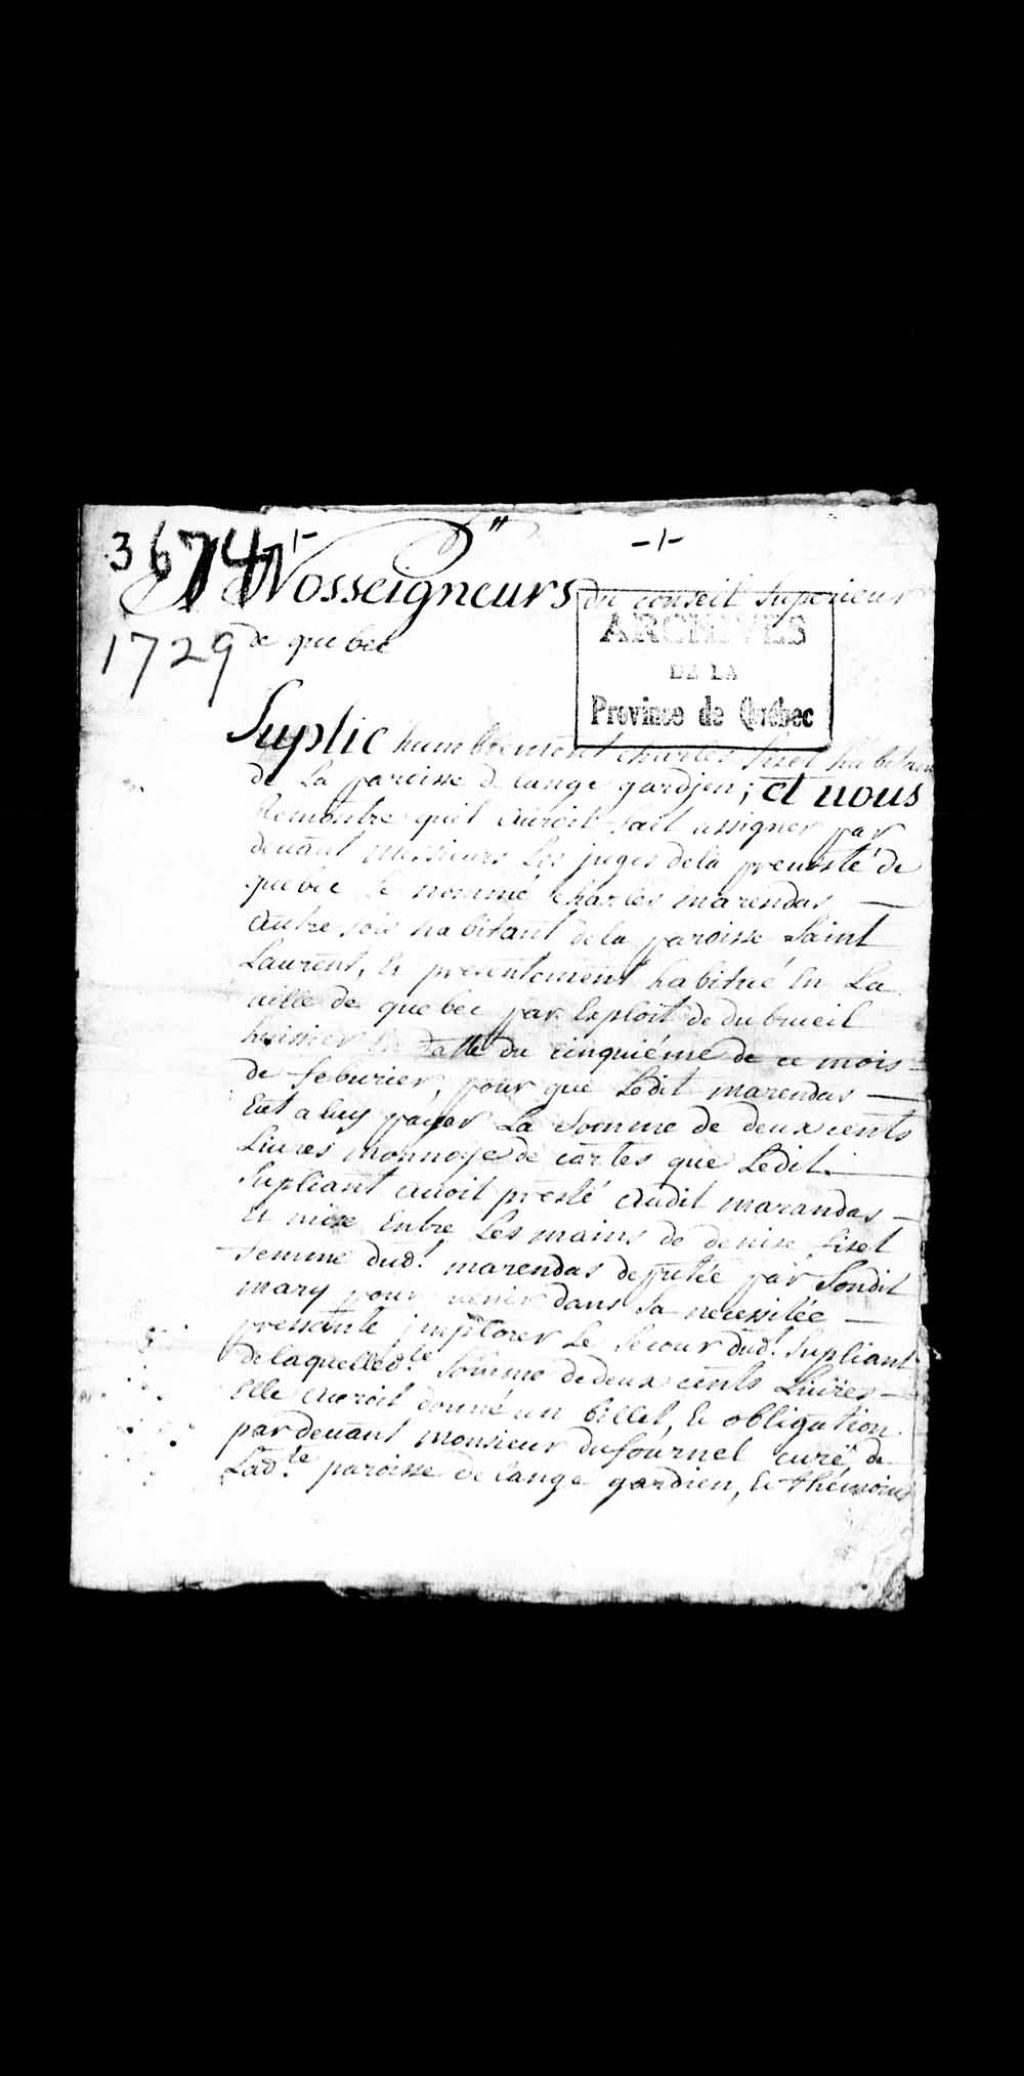 3674 -1- -1-
A Nosseigneurs du conseil Superieur
1729 de quebec
ARCHIVES
DE LA
Province de Québec
Suplie humblement charles fiset habitant
de La paroisse de lange gardjen; et uous
Remontre quil auroit fait assigner par
deuant messieurs Les juges dela preuosté de
quebec le nommé charles marendas —
autre fois habitant dela paroisse Saint
Laurent, et presentement habitué En La
uille de quebec par Exploit de dubrueil
huissier En datte du cinquiéme de ce mois
de feburier, pour que Ledit marendas —
Eut a luy payer La Somme de deux cents
Liures monnoye de cartes que Ledit —
Supliant auoit presté audit marandas —
et mise Entre Les mains de denise fiset
femme dud.t marendas deputée par Sondit
mary pour uenir dans sa necessitée —
pressante jmplorer Le Secour dud.t Supliant
de laquelled.te Somme de deux cents Liures —
elle auroit donné un billet, et obligation
pardeuant monsieur dufournel curé de
Lad.te paroisse de lange gardien, et thémoins